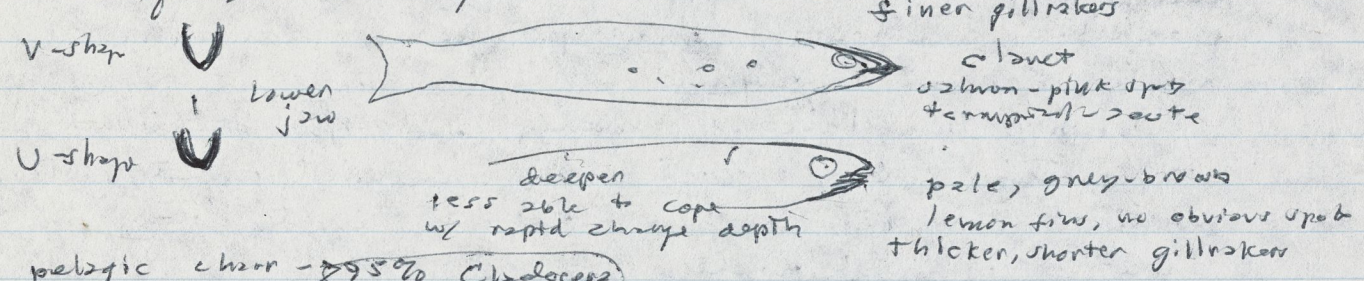 finer gillrakers
V-shap
claret
Lower
jaw
salmon-pink spots
terminal acute
U-shape
deeper
less able to cope
w/ rapid change depth
pale, grey-brown
lemon fins, no obvious spots
thicker, shorter gillrakers
pelagic charr - 95% Cladocera